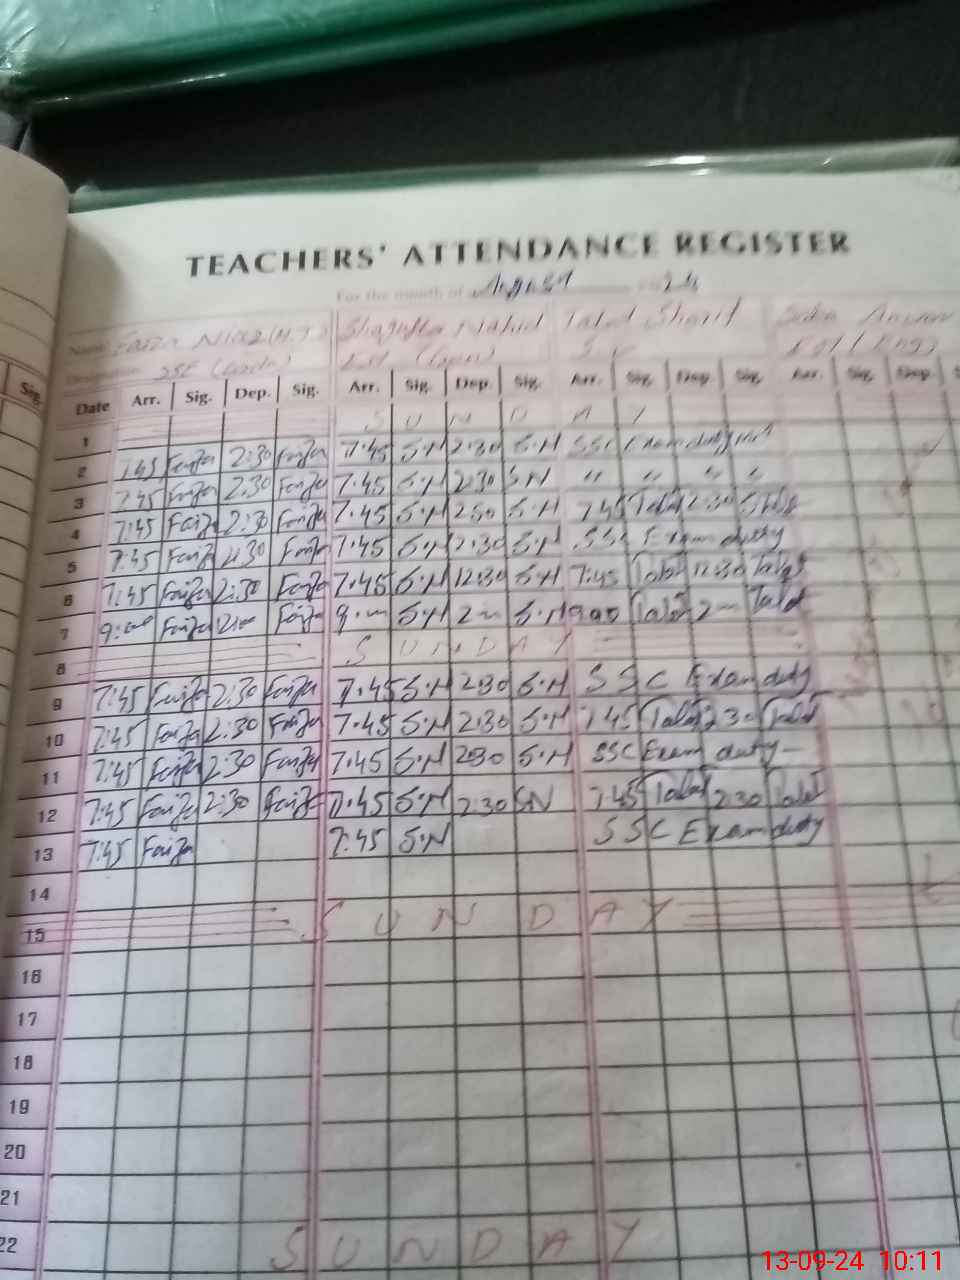 TEACHERS' ATTENDANCE REGISTER
For the month of August 24
Name Faiza Niaz Shagufta Nahid Talat Sharif Anwar
Designation SSE
Sig. Date Arr. Sig. Dep. Sig. Arr. Sig. Dep. Sig. Arr. Sig. Dep. Sig. Arr. Sig. Dep.
1 SUNDAY
2 7:45 Faiza 2:30 Faiza 7:45 S.N 2:30 S.N SSC Exam duty
3 7:45 Faiza 2:30 Faiza 7:45 S.N 2:30 S.N " " " "
4 7:45 Faiza 2:30 Faiza 7:45 S.N S.N 7:45 Talat 2:30
5 7:45 Faiza 2:30 Faiza 7:45 S.N 2:30 S.N SSC Exam duty
6 7:45 Faiza 2:30 Faiza 7:45 S.N 12:30 S.N 7:45 Talat 12:30 Talat
7 9:00 Faiza 2:00 Faiza 9:00 S.N 2:00 S.N 9:00 Talat 2:00 Talat
8 SUNDAY
9 7:45 Faiza 2:30 Faiza 7:45 S.N 2:30 S.N SSC Exam duty
10 7:45 Faiza 2:30 Faiza 7:45 S.N 2:30 S.N 7:45 Talat 2:30 Talat
11 7:45 Faiza 2:30 Faiza 7:45 S.N 2:30 S.N SSC Exam duty
12 7:45 Faiza 2:30 Faiza 7:45 S.N 2:30 S.N 7:45 Talat 2:30 Talat
13 7:45 Faiza 7:45 S.N SSC Exam duty
14
15 SUNDAY
16
17
18
19
20
21
22 SUNDAY
13-09-24 10:11